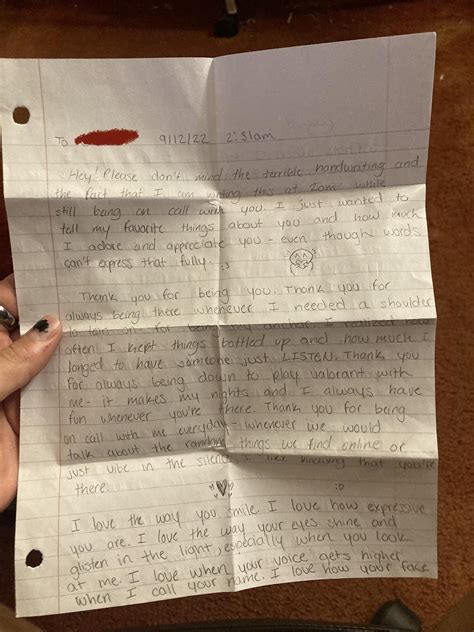 To 9/12/22 2:31am
Hey! Please don't mind the terrible handwriting and
the fact that I am writing this at 2am while
still being on call with you. I just wanted to
tell my favorite things about you and how much
I adore and appreciate you - even though words
can't express that fully. :3
Thank you for being you. Thank you for
always being there whenever I needed a shoulder
to lean on for being my anchor. I realized how
often I kept things bottled up and how much I
longed to have someone just LISTEN. Thank you
for always being down to play valorant with
me - it makes my nights and I always have
fun whenever you're there. Thank you for being
on call with me everyday - whenever we would
talk about the random things we find online or
just vibe in the silence I like knowing that you're
there. :D
I love the way you smile. I love how expressive
you are. I love the way your eyes shine and
glisten in the light, especially when you look
at me. I love when your voice gets higher
when I call your name. I love how your face